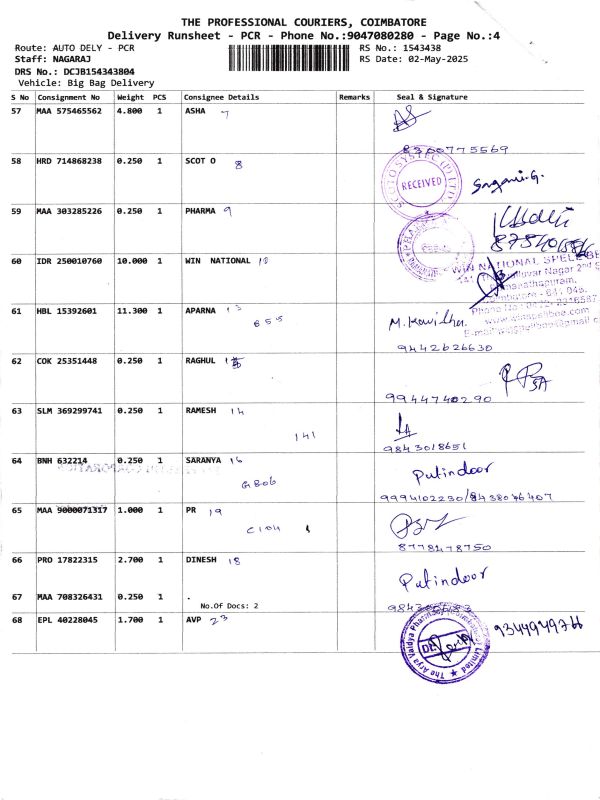 THE PROFESSIONAL COURIERS, COIMBATORE
Delivery Runsheet - PCR - Phone No.:9047080280 - Page No.:4
Route: AUTO DELY - PCR RS No.: 1543438
Staff: NAGARAJ RS Date: 02-May-2025
DRS No.: DCJB154343804
Vehicle: Big Bag Delivery
S No Consignment No Weight PCS Consignee Details Remarks Seal & Signature
57 MAA 575465562 4.800 1 ASHA 7
8300775569
58 HRD 714868238 0.250 1 SCOT O 8
RECEIVED
59 MAA 303285226 0.250 1 PHARMA 9
60 IDR 250010760 10.000 1 WIN NATIONAL 10
WIN NATIONAL
61 HBL 15392601 11.300 1 APARNA 13
655
M. Kavitha
9442626630
62 COK 25351448 0.250 1 RAGHUL
9944740290
63 SLM 369299741 0.250 1 RAMESH 14
141
9843018651
64 BNH 632214 0.250 1 SARANYA 16
G806
Putindoor
9994102230/8438076407
65 MAA 9000071317 1.000 1 PR 19
C104
8778478750
66 PRO 17822315 2.700 1 DINESH 18
Putindoor
67 MAA 708326431 0.250 1 .
No.Of Docs: 2
68 EPL 40228045 1.700 1 AVP 23
9344949766
The Arya Vaidya Pharmacy Limited